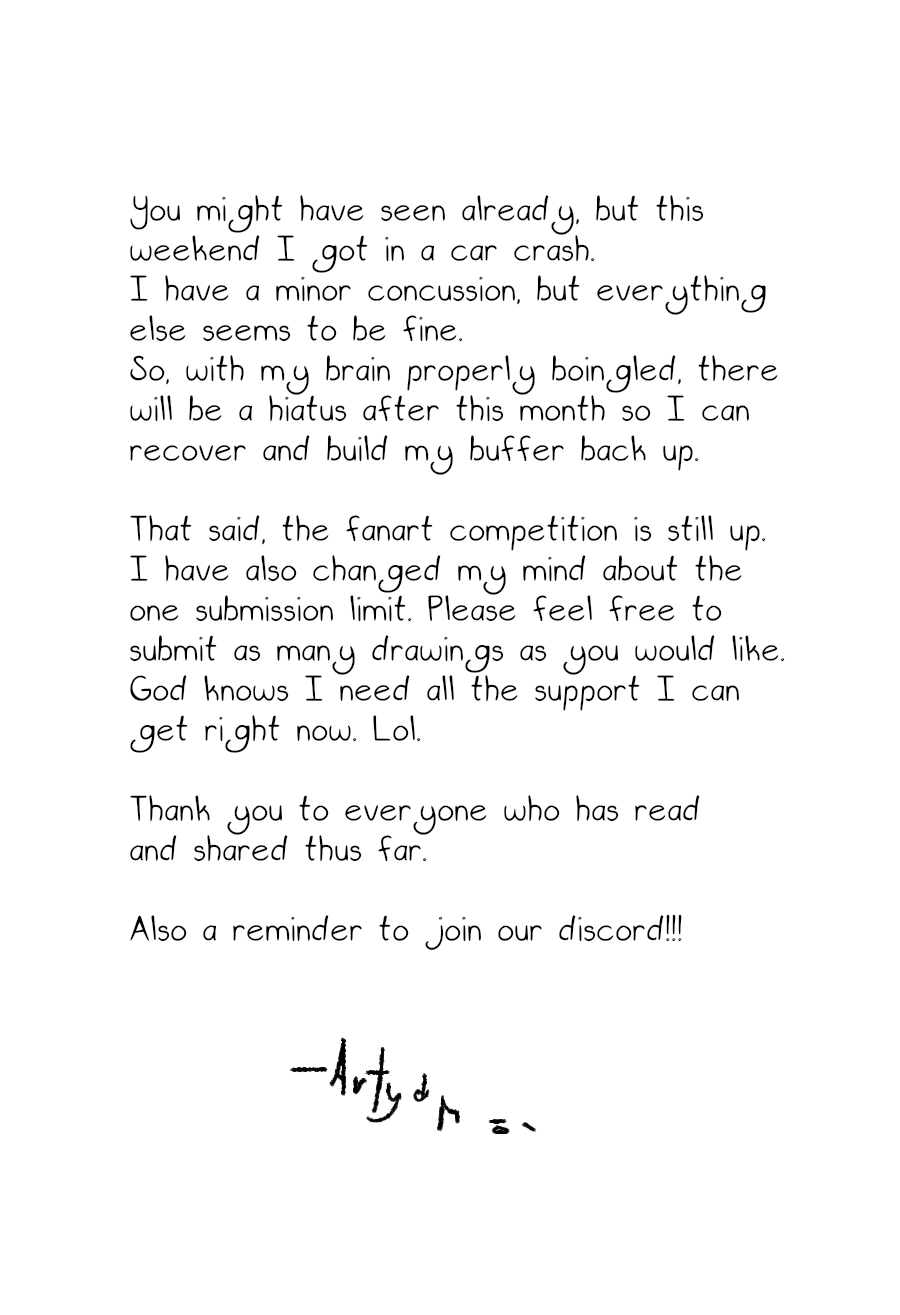 You might have seen already, but this
weekend I got in a car crash.
I have a minor concussion, but everything
else seems to be fine.
So, with my brain properly boingled, there
will be a hiatus after this month so I can
recover and build my buffer back up.
That said, the fanart competition is still up.
I have also changed my mind about the
one submission limit. Please feel free to
submit as many drawings as you would like.
God knows I need all the support I can
get right now. Lol.
Thank you to everyone who has read
and shared thus far.
Also a reminder to join our discord!!!